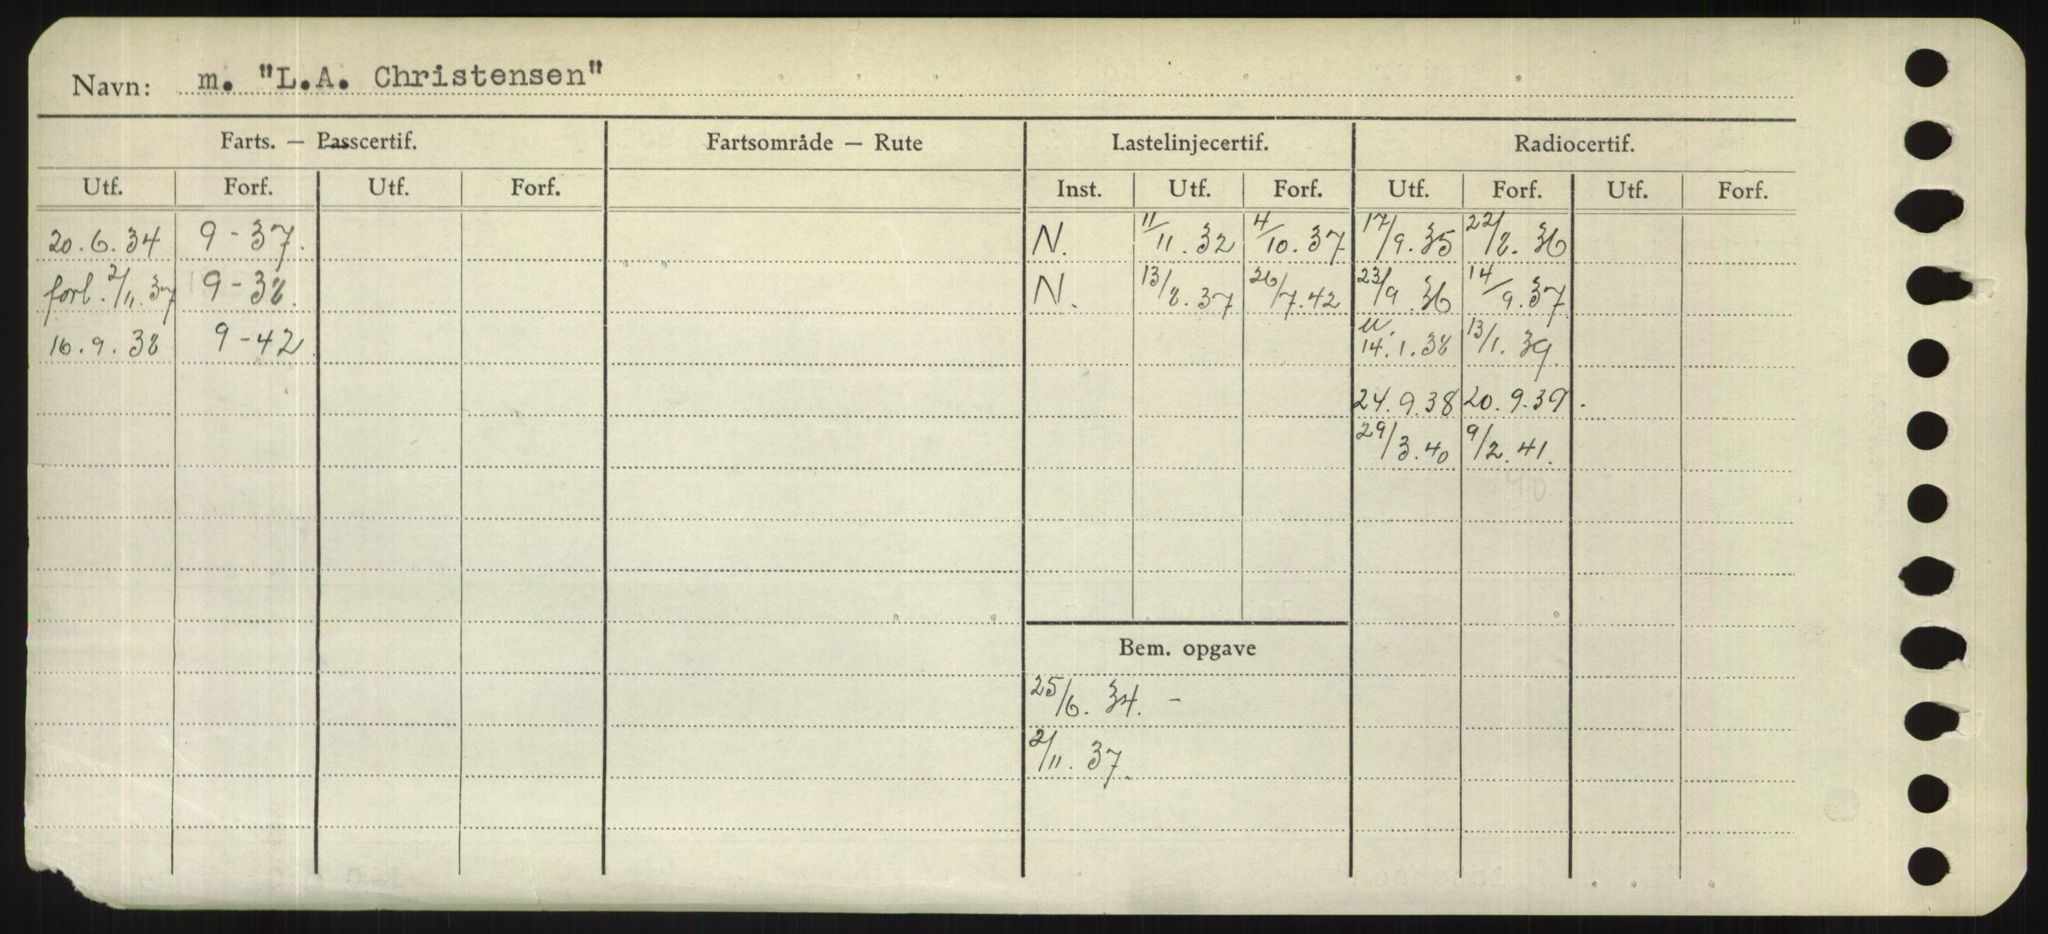 Navn: m. "L.A. Christensen"
Farts. — Passcertif. Fartsområde — Rute Lastelinjecertif. Radiocertif.
Utf. Forf. Utf. Forf. Inst. Utf. Forf. Utf. Forf. Utf. Forf.
20.6.34 9-37. N. 11/11.32 4/10.37 17/9.35 22/8.36
forl. 2/11.37 9-38. N. 13/8.37 26/7.42 23/9.36 14/9.37
16.9.38 9-42 14.1.38 13/1.39
24.9.38 20.9.39.
29/3.40 9/2.41.
Bem. opgave
25/6.34. -
2/11.37.